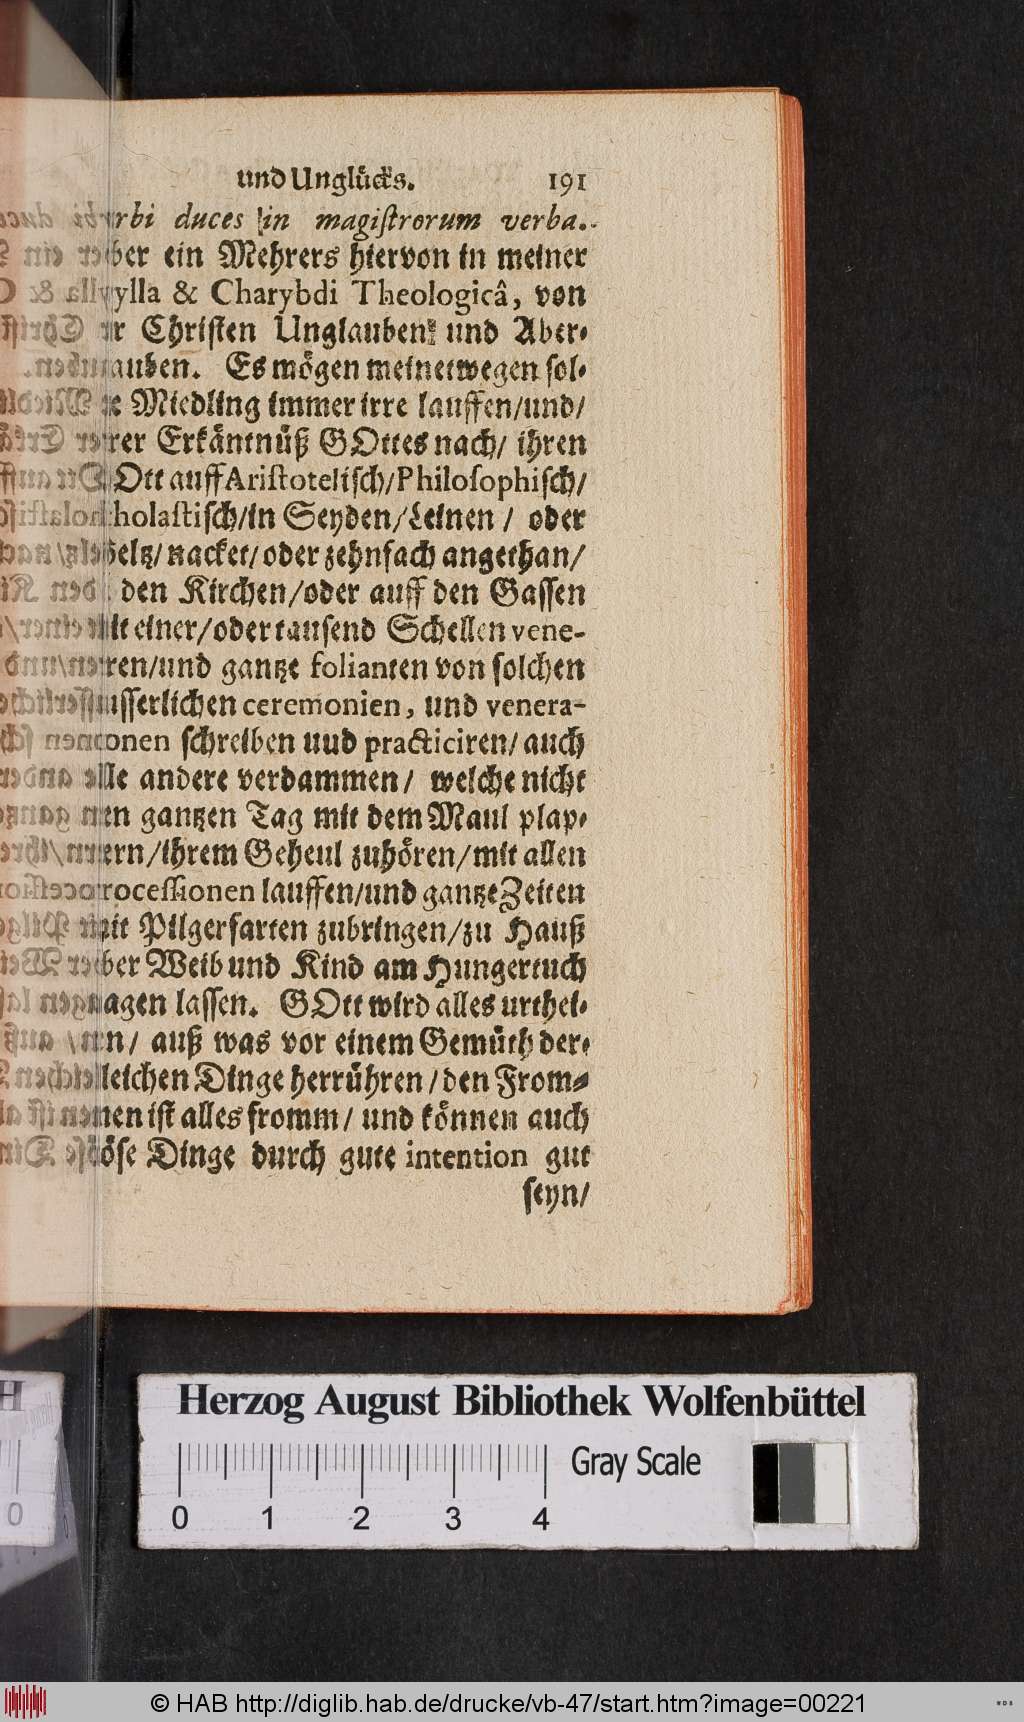 und Unglücks. 191
duces in magistrorum verba.
ein Mehrers hiervon in meiner
& Charybdi Theologicâ, von
Christen Unglauben und Aber-
Es mögen meinetwegen sol-
Miedling immer irre lauffen/und/
Erkäntnüß GOttes nach/ ihren
GOtt auff Aristotelisch/Philosophisch/
in Seyden/Leinen / oder
nacket/oder zehnfach angethan/
den Kirchen/oder auff den Gassen
mit einer/oder tausend Schellen vene-
und gantze folianten von solchen
ceremonien, und venera-
schreiben uud practiciren/ auch
alle andere verdammen/ welche nicht
gantzen Tag mit dem Maul plap-
ihrem Geheul zuhören/mit allen
processionen lauffen/und gantze Zeiten
mit Pilgerfarten zubringen/zu Hauß
Weib und Kind am Hungertuch
nagen lassen. GOtt wird alles urthei-
len/ auß was vor einem Gemüth der-
gleichen Dinge herrühren/den From-
men ist alles fromm/ und können auch
böse Dinge durch gute intention gut
seyn/
Herzog August Bibliothek Wolfenbüttel
Gray Scale
0 1 2 3 4
© HAB http://diglib.hab.de/drucke/vb-47/start.htm?image=00221